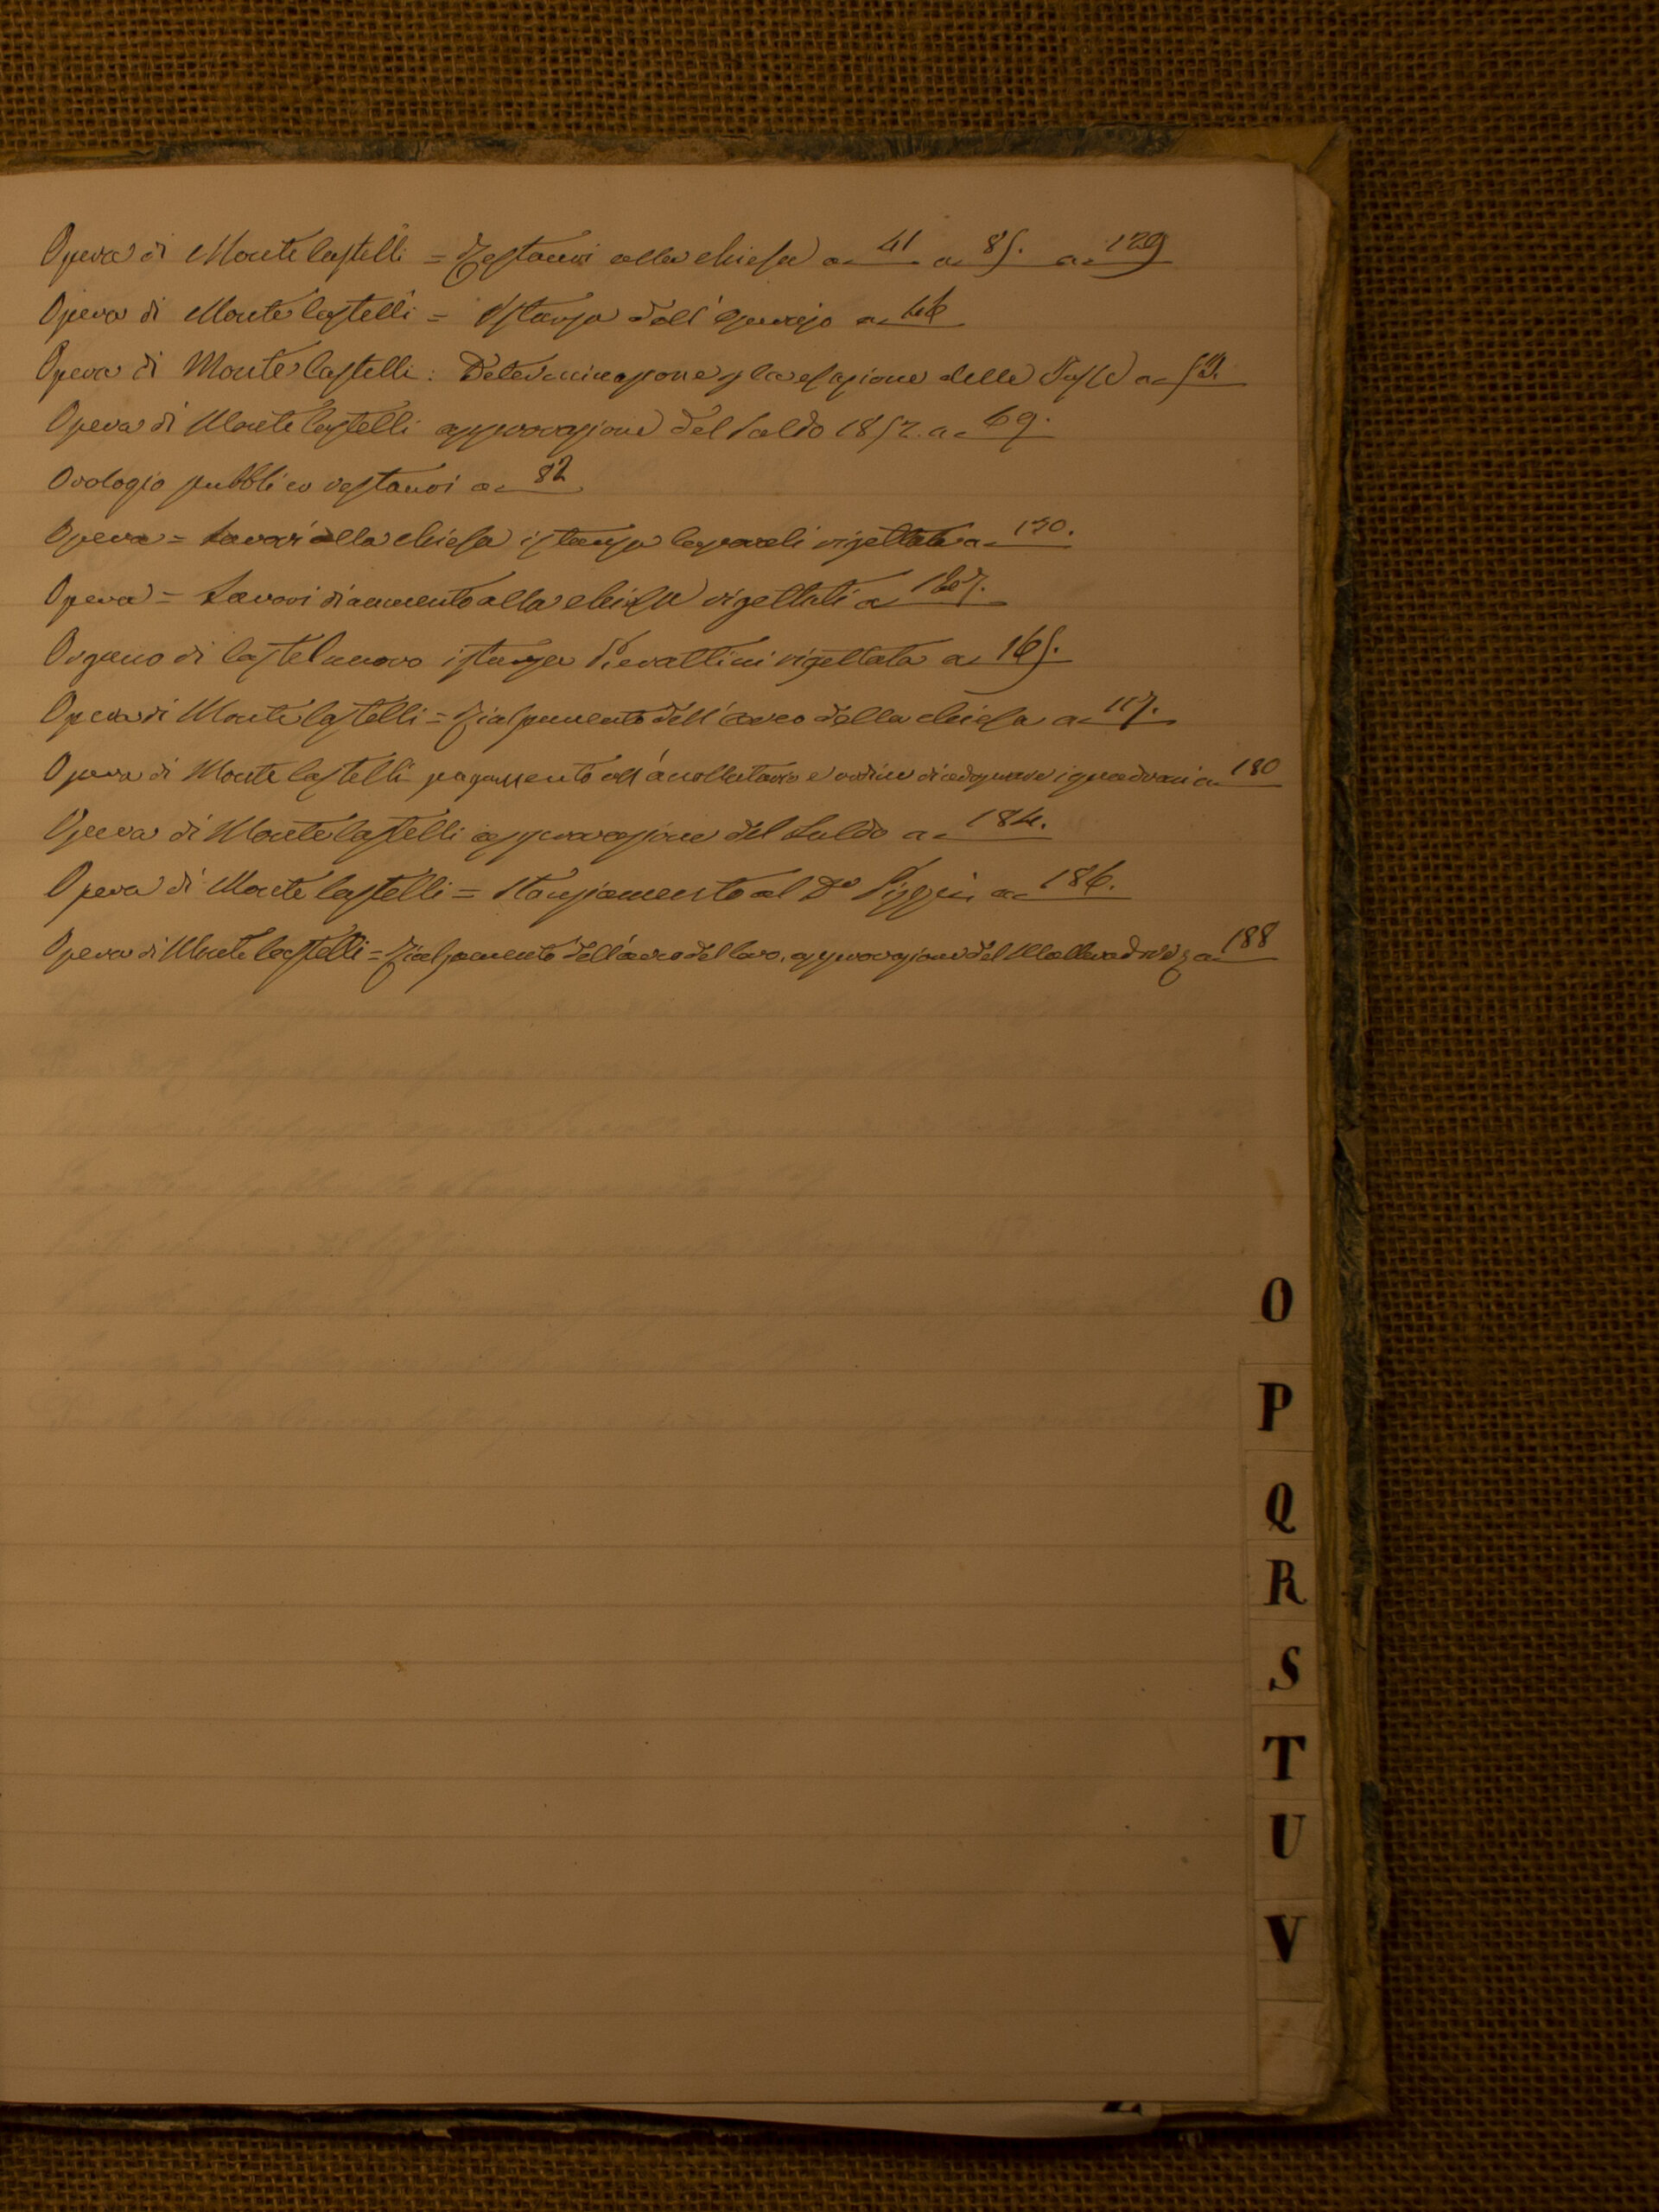 Opera di Monte Castelli = Restauri alla chiesa a 41 a 85. a 129
Opera di Monte Castelli = Istanza dell'Operajo a 46
Opera di Monte Castelli: Determinazione p la esazione delle Tasse a
Opera di Monte Castelli approvazione del Saldo 1852. a 69.
Orologio pubblico restauri a 82
Opera = Lavori alla chiesa istanza rigettata a 130.
Opera = Lavori di aumento alla chiesa rigettati a
Organo di Castelnuovo istanza Pierattini rigettata a 165.
Opera di Monte Castelli = Rialzamento dell'arco della chiesa a 117.
Opera di Monte Castelli pagamento all'accollatario e ordine di adoprare i quadroni a 180
Opera di Monte Castelli approvazione del Saldo a 184.
Opera di Monte Castelli = Stanziamento al Do a 186.
Opera di Monte Castelli = Rialzamento dell'arco del Coro, approvazione del a 188
O
P
Q
R
S
T
U
V